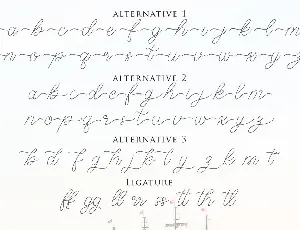 ALTERNATIVE 1
a-b-c-d-e-f-g-h-i-j-k-l-m
n-o-p-q-r-s-t-u-v-w-x-y-z
ALTERNATIVE 2
a-b-c-d-e-f-g-h-i-j-k-l-m-
n-o-p-q-r-s-t-u-v-w-x-y-z-
ALTERNATIVE 3
b d f g h j k l y z k m t
LIGATURE
ff gg ll rr ss tt th tl